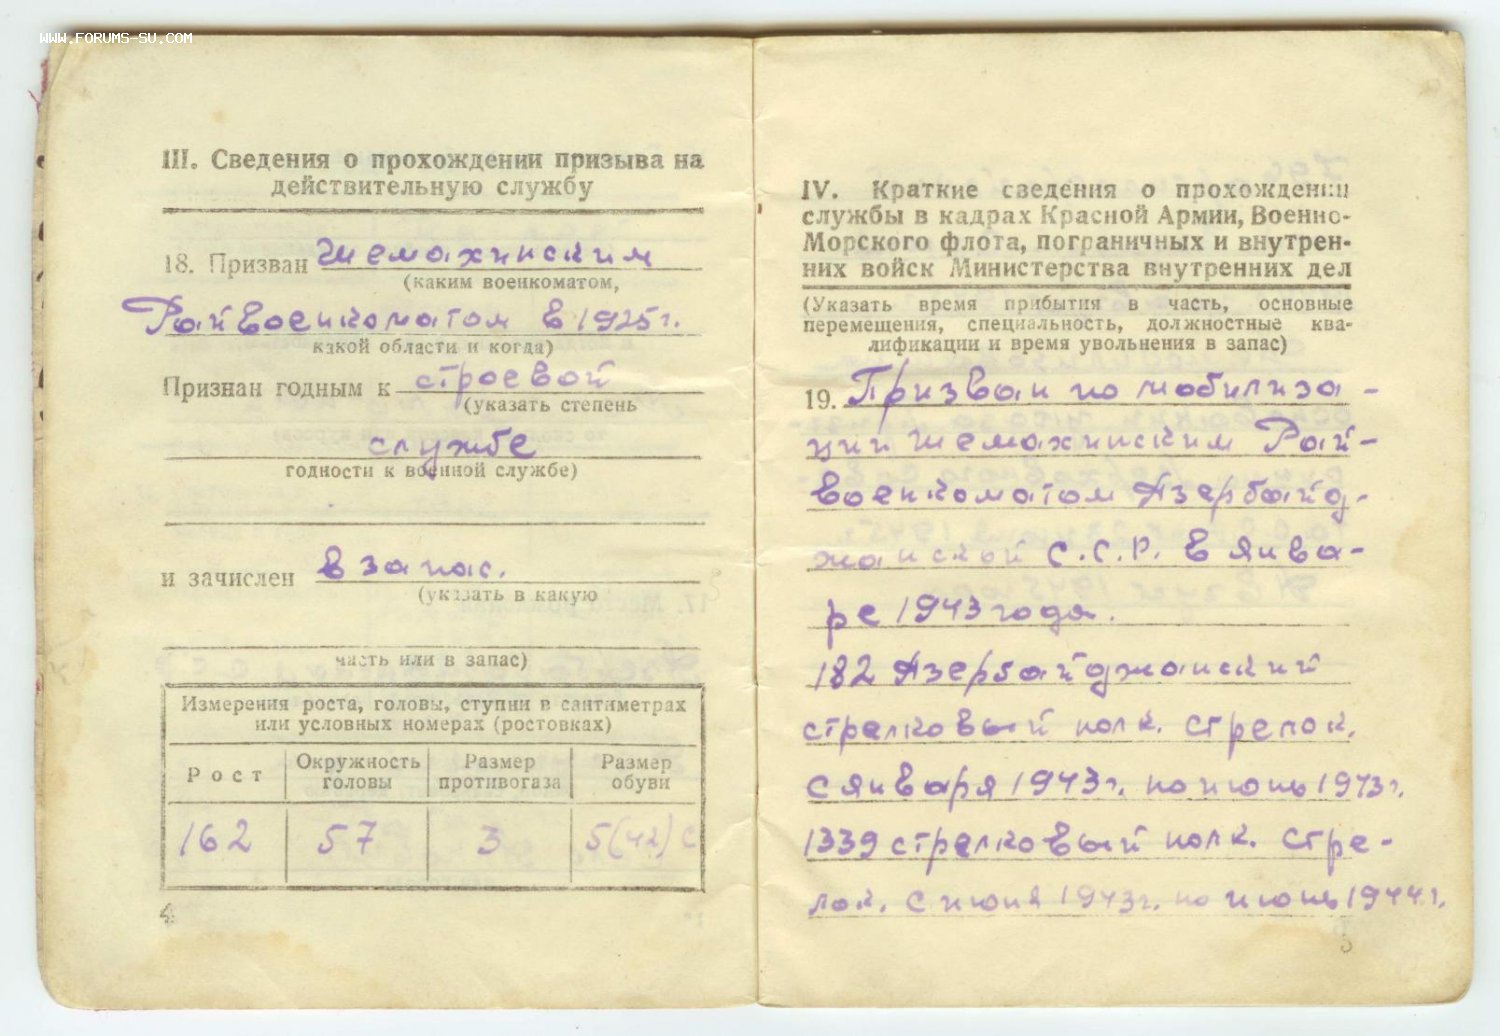 WWW.FORUMS-SU.COM
III. Сведения о прохождении призыва на
действительную службу
18. Призван Шемахинским
(каким военкоматом,
Райвоенкоматом в 1925г.
какой области и когда)
Признан годным к строевой
(указать степень
службе
годности к военной службе)
и зачислен в запас.
(указать в какую
часть или в запас)
Измерения роста, головы, ступни в сантиметрах
или условных номерах (ростовках)
Рост
Окружность головы
Размер противогаза
Размер обуви
162 57 3 5(42) с
4
IV. Краткие сведения о прохождении
службы в кадрах Красной Армии, Военно-
Морского флота, пограничных и внутрен-
них войск Министерства внутренних дел
(Указать время прибытия в часть, основные
перемещения, специальность, должностные ква-
лификации и время увольнения в запас)
19. Призван по мобилиза-
ции Шемахинским Рай-
военкоматом Азербайд-
жанской С.С.Р. в янва-
ре 1943 года.
182 Азербайджанский
стрелковый полк. Стрелок.
С января 1943г. по июнь 1943г.
1339 стрелковый полк. Стре-
лок. С июня 1943г. по июнь 1944г.
5